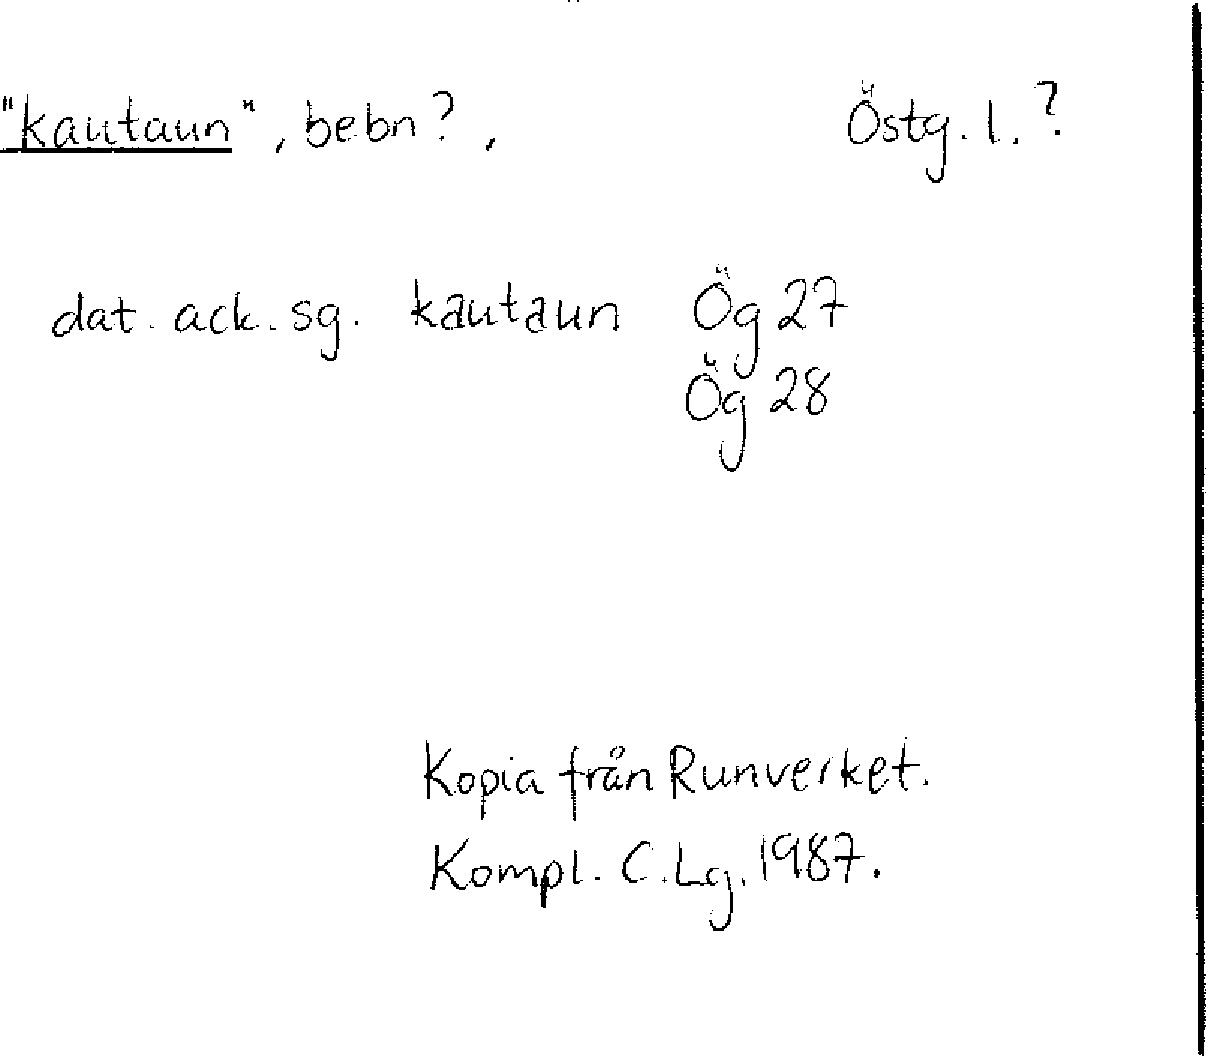 "kautaun", bebn?, Östg. l.?
dat. ack. sg. kautaun Ög 27
Ög 28
Kopia från Runverket.
Kompl. C.Lg. 1987.